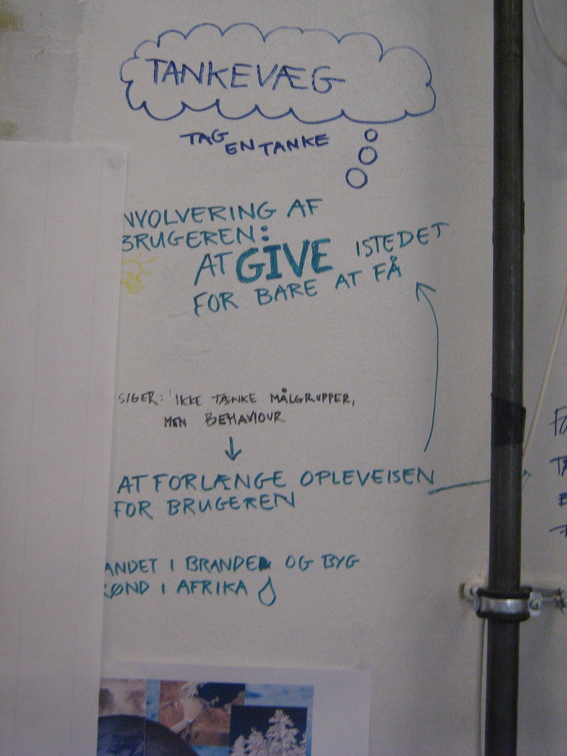 TANKEVÆG
TAG EN TANKE
NVOLVERING AF
BRUGEREN:
AT GIVE ISTEDET
FOR BARE AT FÅ
SIGER: IKKE TÆNKE MÅLGRUPPER,
MEN BEHAVIOUR
AT FORLÆNGE OPLEVELSEN
FOR BRUGEREN
ANDET I BRANDET OG BYG
ØND I AFRIKA